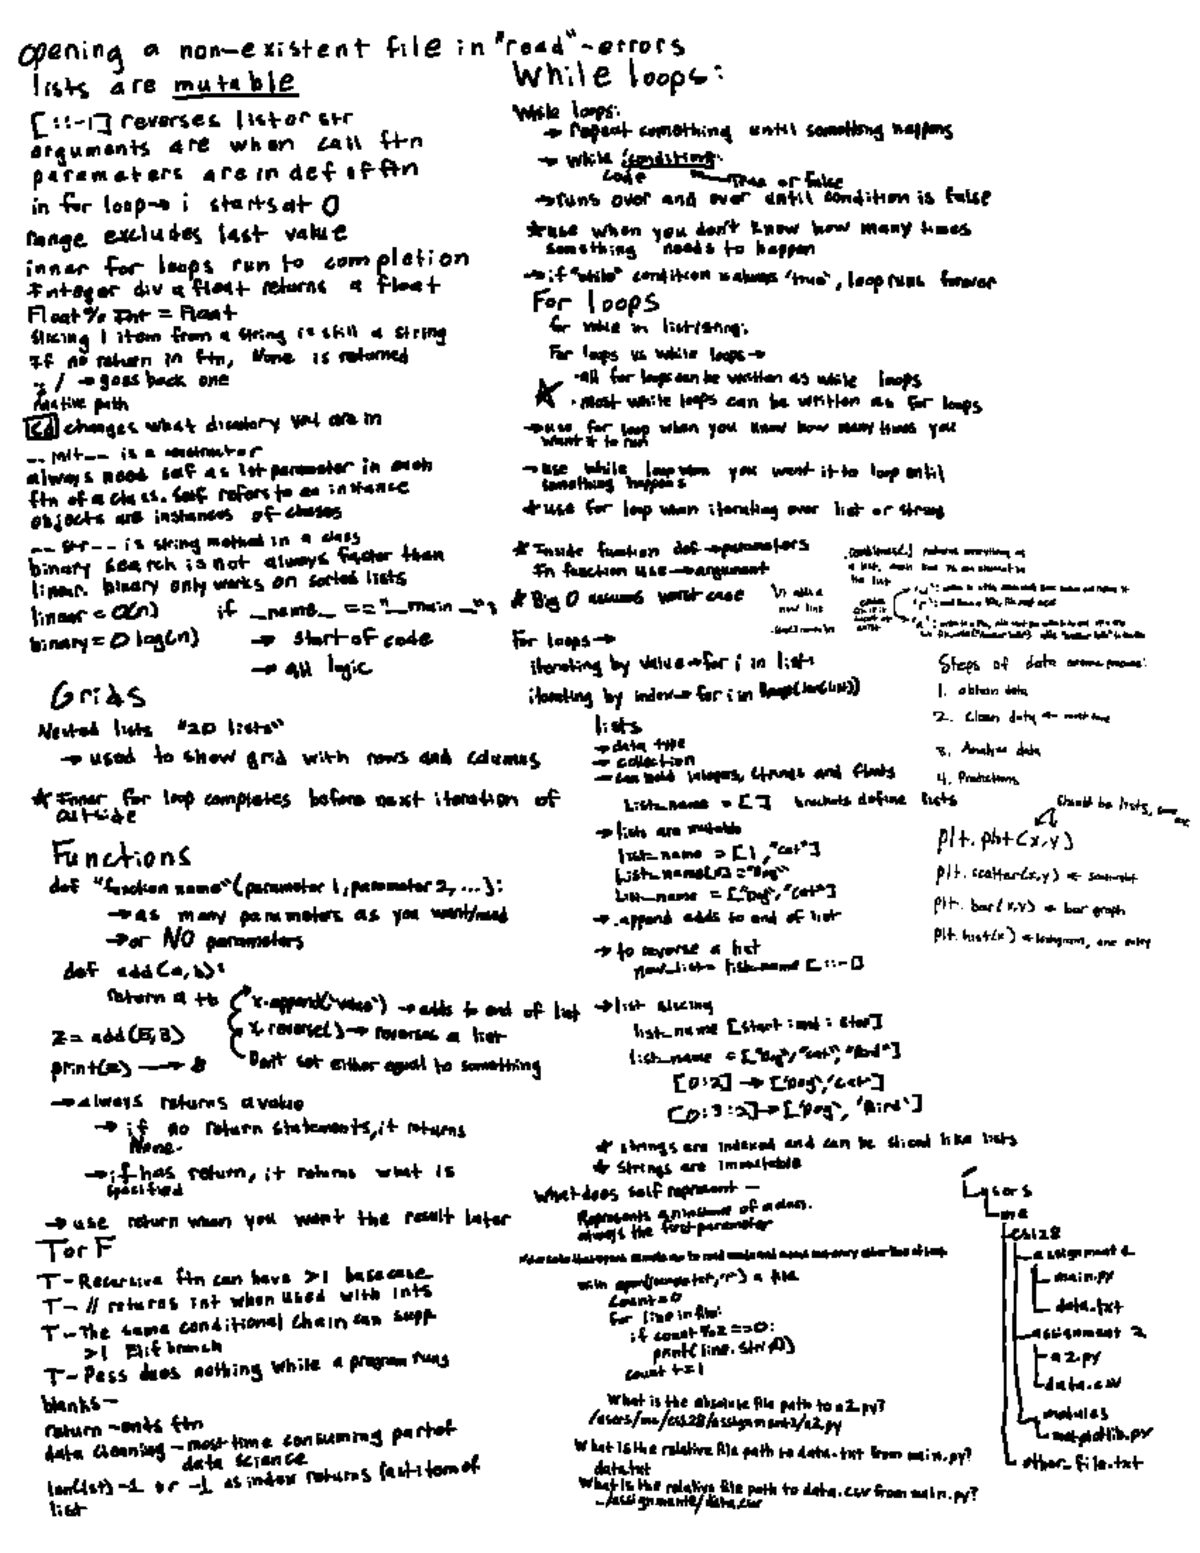 opening a non-existent file in "read" - errors
lists are mutable
[::-1] reverses list or str
arguments are when call ftn
parameters are in def of ftn
in for loop → i starts at 0
range excludes last value
inner for loops run to completion
Integer div a float returns a float
Float % Int = Float
Slicing 1 item from a string is still a string
If no return in ftn, None is returned
/ → goes back one
relative path
cd changes what directory you are in
__init__ is a constructor
always need self as 1st parameter in each
ftn of a class. Self refers to an instance
objects are instances of classes
__str__ is string method in a class
binary search is not always faster than
linear. binary only works on sorted lists
linear = O(n)
binary = O log(n)
if __name__ == "__main__":
→ start of code
→ all logic
Grids
Nested lists "2D lists"
→ used to show grid with rows and columns
★ Inner for loop completes before next iteration of
outside
Functions
def "function name" (parameter 1, parameter 2, ...):
→ as many parameters as you want/need
→ or NO parameters
def add(a,b):
return a + b
z = add(5,3)
print(z) → 8
x.append("value") → adds to end of list
x.reverse() → reverses a list
Don't set either equal to something
→ always returns a value
→ if no return statements, it returns
None.
→ if has return, it returns what is
specified
→ use return when you want the result later
T or F
T - Recursive ftn can have >1 base case
T - // returns int when used with ints
T - The same conditional chain can supp
>1 Elif branch
T - Pass does nothing while a program runs
blanks -
return - ends ftn
data cleaning - most time consuming part of
data science
len(lst) -1 or -1 as index returns last item of
list
While loops:
While loops:
→ repeat something until something happens
→ while (condition):
code
True or false
→ runs over and over until condition is false
★ use when you don't know how many times
something needs to happen
→ if "while" condition is always "true", loop runs forever
For loops
for value in list/string:
For loops vs while loops →
- all for loops can be written as while loops
★ - most while loops can be written as for loops
→ use for loop when you know how many times you
want it to run
→ use while loop when you want it to loop until
something happens
★ use for loop when iterating over list or string
★ Inside function def → parameters
In function use → argument
★ Big O assumes worst case
For loops →
iterating by value → for i in list
iterating by index → for i in Range(len(list))
lists
→ data type
→ collection
→ can hold integers, strings and floats
list_name = [ ] brackets define lists
→ lists are mutable
list_name = [1, "cat"]
list_name = ["Dog", "Cat"]
→ .append adds to end of list
→ to reverse a list
new_list = list_name [::-1]
→ list slicing
list_name [start : end : step]
list_name = ["Dog", "cat", "Bird"]
[0:2] → ["Dog", "cat"]
[0:3:2] → ["Dog", "Bird"]
★ strings are indexed and can be sliced like lists
★ Strings are immutable
What does self represent -
Represents an instance of a class.
always the first parameter
count = 0
for line in file:
if count % 2 == 0:
print(line.strip())
count += 1
What is the absolute file path to a2.py?
/users/me/cs128/assignment2/a2.py
What is the relative file path to data.txt from main.py?
data.txt
What is the relative file path to data.csv from main.py?
Steps of data
1. obtain data
2. Clean data ←
3. Analyze data
4. Predictions
Should be lists,
plt.plot(x,y)
plt.scatter(x,y) ←
plt.bar(x,y) → bar graph
plt.hist(x) → histogram, one
users
me
cs128
assignment 1
main.py
data.txt
assignment 2
a2.py
data.csv
modules
matplotlib.py
other_file.txt